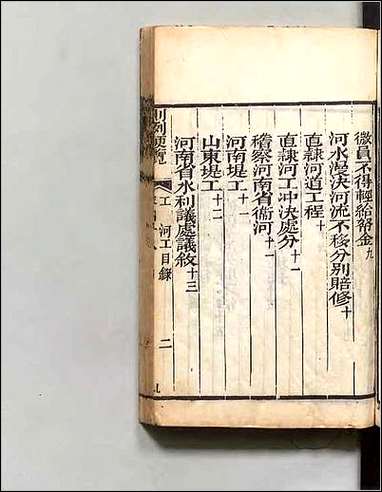 微員不得輕給帑金九
河水漫決河流不移分别賠修十
直隷河道工程十
直隷河工冲決處分十一
稽察河南省衞河十一
河南堤工十一
山東堤工十二
河南省水利議處議敘十三
則例便覽 工 河工目録 二